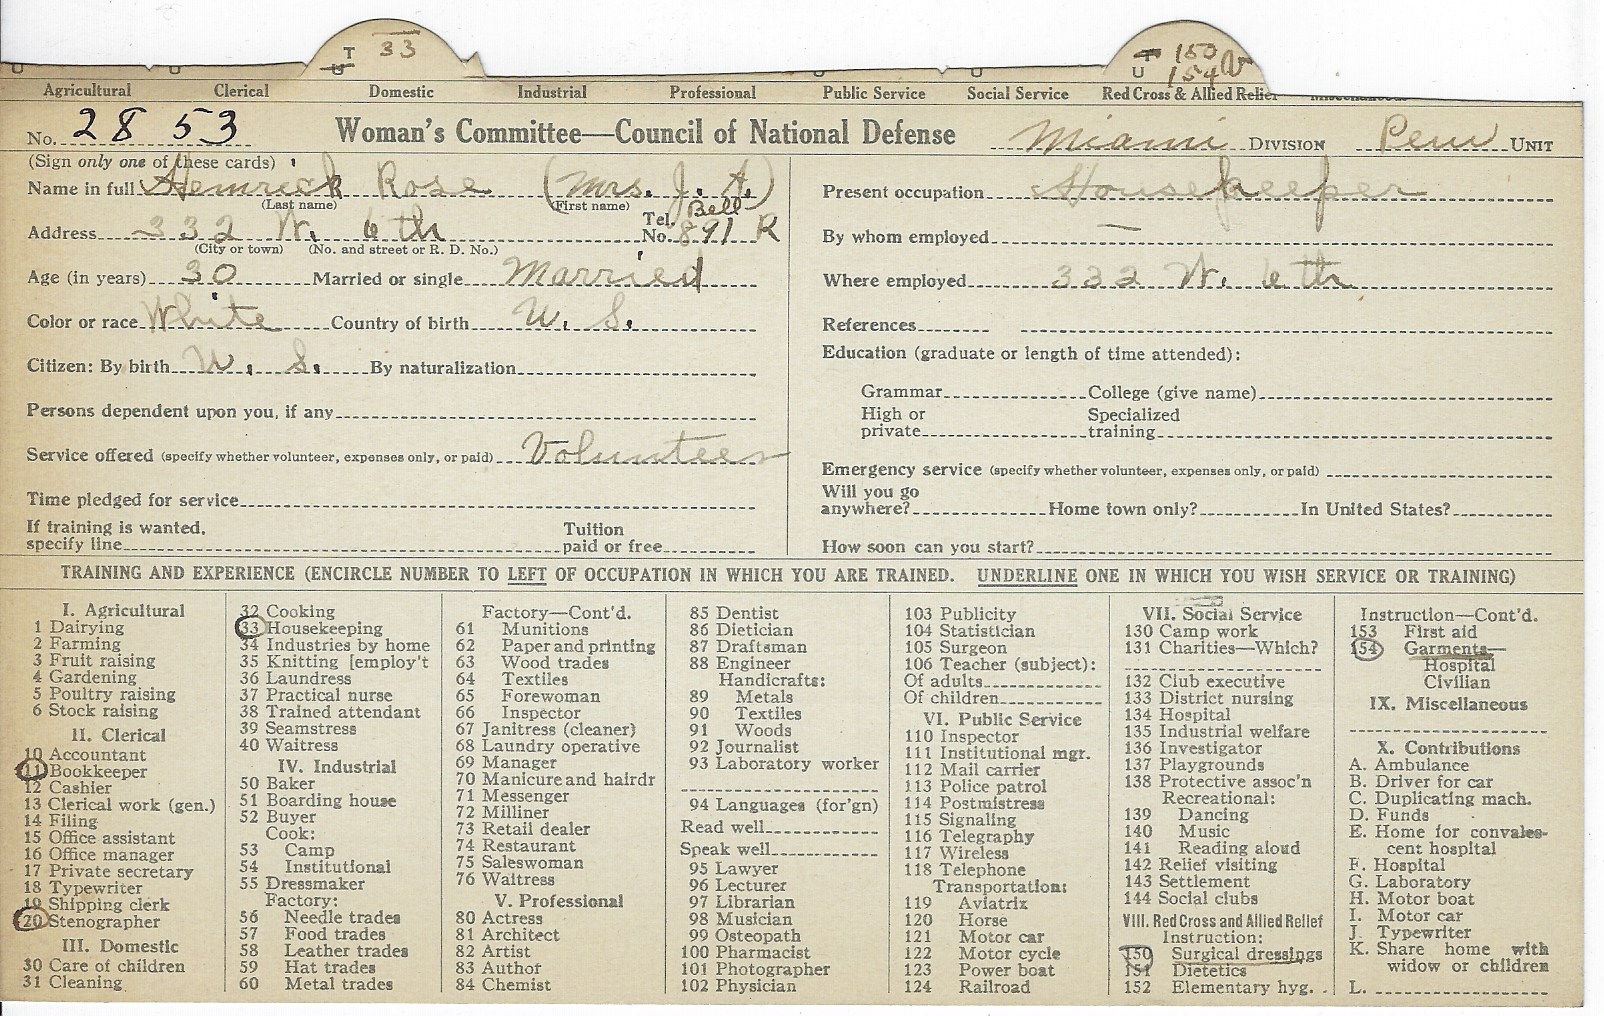 T 33
U
T 150
U 154 V
Agricultural Clerical Domestic Industrial Professional Public Service Social Service Red Cross & Allied Relief
No. 28 53 Woman's Committee—Council of National Defense Miami DIVISION Penn UNIT
(Sign only one of these cards)
Name in full Hemrick Rose (Mrs. J. A.)
(Last name) (First name)
Address 332 W. 6th Tel. No. Bell 891 R
(City or town) (No. and street or R. D. No.)
Age (in years) 30 Married or single Married
Color or race White Country of birth U. S.
Citizen: By birth U. S. By naturalization
Persons dependent upon you, if any
Service offered (specify whether volunteer, expenses only, or paid) Volunteer
Time pledged for service
If training is wanted, specify line Tuition paid or free
Present occupation Housekeeper
By whom employed —
Where employed 332 W. 6th
References
Education (graduate or length of time attended):
Grammar College (give name)
High or private Specialized training
Emergency service (specify whether volunteer, expenses only, or paid)
Will you go anywhere? Home town only? In United States?
How soon can you start?
TRAINING AND EXPERIENCE (ENCIRCLE NUMBER TO LEFT OF OCCUPATION IN WHICH YOU ARE TRAINED. UNDERLINE ONE IN WHICH YOU WISH SERVICE OR TRAINING)
I. Agricultural
1 Dairying
2 Farming
3 Fruit raising
4 Gardening
5 Poultry raising
6 Stock raising
II. Clerical
10 Accountant
11 Bookkeeper
12 Cashier
13 Clerical work (gen.)
14 Filing
15 Office assistant
16 Office manager
17 Private secretary
18 Typewriter
19 Shipping clerk
20 Stenographer
III. Domestic
30 Care of children
31 Cleaning
32 Cooking
33 Housekeeping
34 Industries by home
35 Knitting [employ't
36 Laundress
37 Practical nurse
38 Trained attendant
39 Seamstress
40 Waitress
IV. Industrial
50 Baker
51 Boarding house
52 Buyer
Cook:
53 Camp
54 Institutional
55 Dressmaker
Factory:
56 Needle trades
57 Food trades
58 Leather trades
59 Hat trades
60 Metal trades
Factory—Cont'd.
61 Munitions
62 Paper and printing
63 Wood trades
64 Textiles
65 Forewoman
66 Inspector
67 Janitress (cleaner)
68 Laundry operative
69 Manager
70 Manicure and hairdr
71 Messenger
72 Milliner
73 Retail dealer
74 Restaurant
75 Saleswoman
76 Waitress
V. Professional
80 Actress
81 Architect
82 Artist
83 Author
84 Chemist
85 Dentist
86 Dietician
87 Draftsman
88 Engineer
Handicrafts:
89 Metals
90 Textiles
91 Woods
92 Journalist
93 Laboratory worker
94 Languages (for'gn)
Read well
Speak well
95 Lawyer
96 Lecturer
97 Librarian
98 Musician
99 Osteopath
100 Pharmacist
101 Photographer
102 Physician
103 Publicity
104 Statistician
105 Surgeon
106 Teacher (subject):
Of adults
Of children
VI. Public Service
110 Inspector
111 Institutional mgr.
112 Mail carrier
113 Police patrol
114 Postmistress
115 Signaling
116 Telegraphy
117 Wireless
118 Telephone
Transportation:
119 Aviatrix
120 Horse
121 Motor car
122 Motor cycle
123 Power boat
124 Railroad
VII. Social Service
130 Camp work
131 Charities—Which?
132 Club executive
133 District nursing
134 Hospital
135 Industrial welfare
136 Investigator
137 Playgrounds
138 Protective assoc'n
Recreational:
139 Dancing
140 Music
141 Reading aloud
142 Relief visiting
143 Settlement
144 Social clubs
VIII. Red Cross and Allied Relief
Instruction:
150 Surgical dressings
151 Dietetics
152 Elementary hyg.
Instruction—Cont'd.
153 First aid
154 Garments—
Hospital
Civilian
IX. Miscellaneous
X. Contributions
A. Ambulance
B. Driver for car
C. Duplicating mach.
D. Funds
E. Home for convales-
cent hospital
F. Hospital
G. Laboratory
H. Motor boat
I. Motor car
J. Typewriter
K. Share home with
widow or children
L.